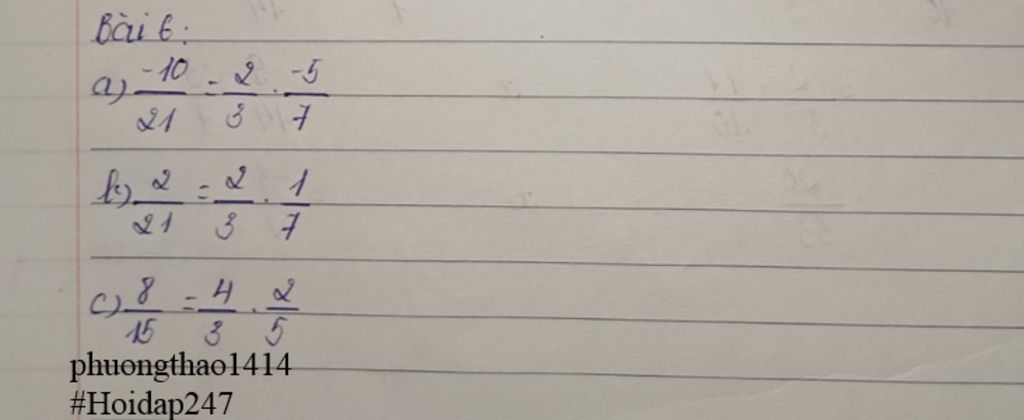 Bài 6:
a) -10/21 = 2/3 . -5/7
b) 2/21 = 2/3 . 1/7
c) 8/15 = 4/3 . 2/5
phuongthao1414
#Hoidap247